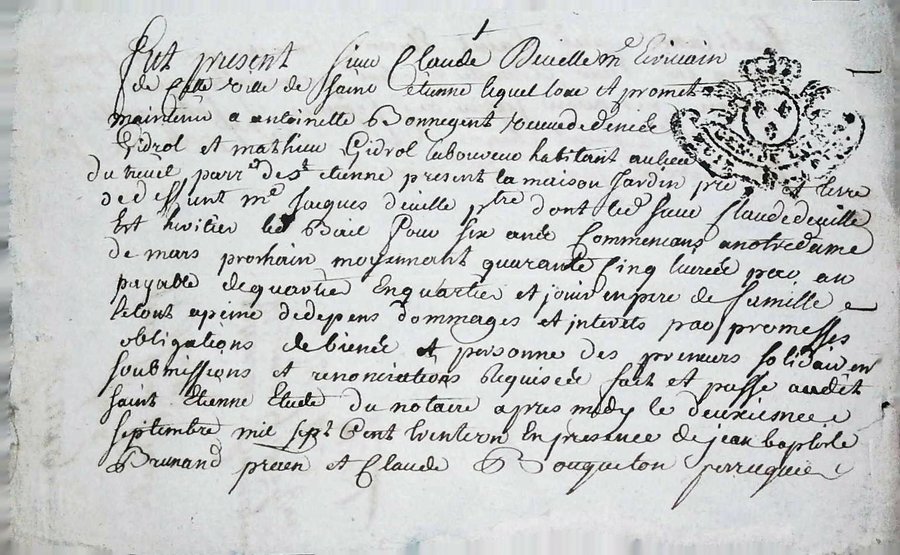 Fut present sieur Claude Deville me Ecrivain
de Cette ville de Saint Etienne lequel loue et promet
maintenir a antoinette Bonnegent veuve de deniée
Gidrol et mathieu Gidrol laboureur habitant au lieu
du treuil parr. de st etienne present la maison Jardin pré et terre
de deffunt me Jacques deville ptre dont led sieur Claude deville
Est heritier le Bail Pour six anné Commencans a notre dame
de mars prochain moyennant quarante Cinq livrée par an
payable de quartié En quartier et jouir en pere de famille e
a peine de depens dommages et interets par promesses
obligations de bienée et personne des preneurs solidairem
soubmissions et renonciations Requisée fait et passé audit
Saint Etienne Etude du notaire apres midy le deuxiesme
septembre mil sept Cent En presence de jean baptiste
Brunand et Claude Bouqueton perruquie
GEN DE LY